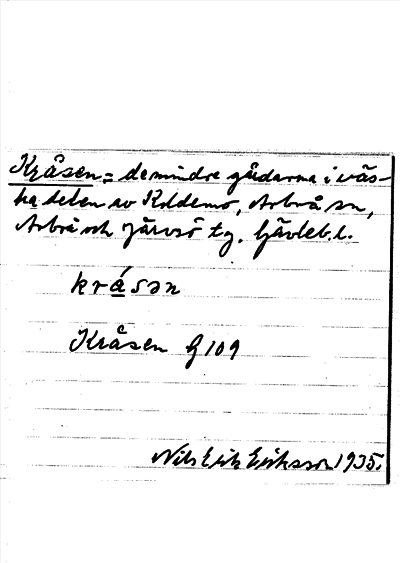 Kråsen = de mindre gårdarna i väs-
tra delen av Koldemo, Arbrå sn,
Arbrå och Järvsö tg. Gävleb. l.
kråsən
Kråsen G 109
Nils Erik Eriksson 1935.